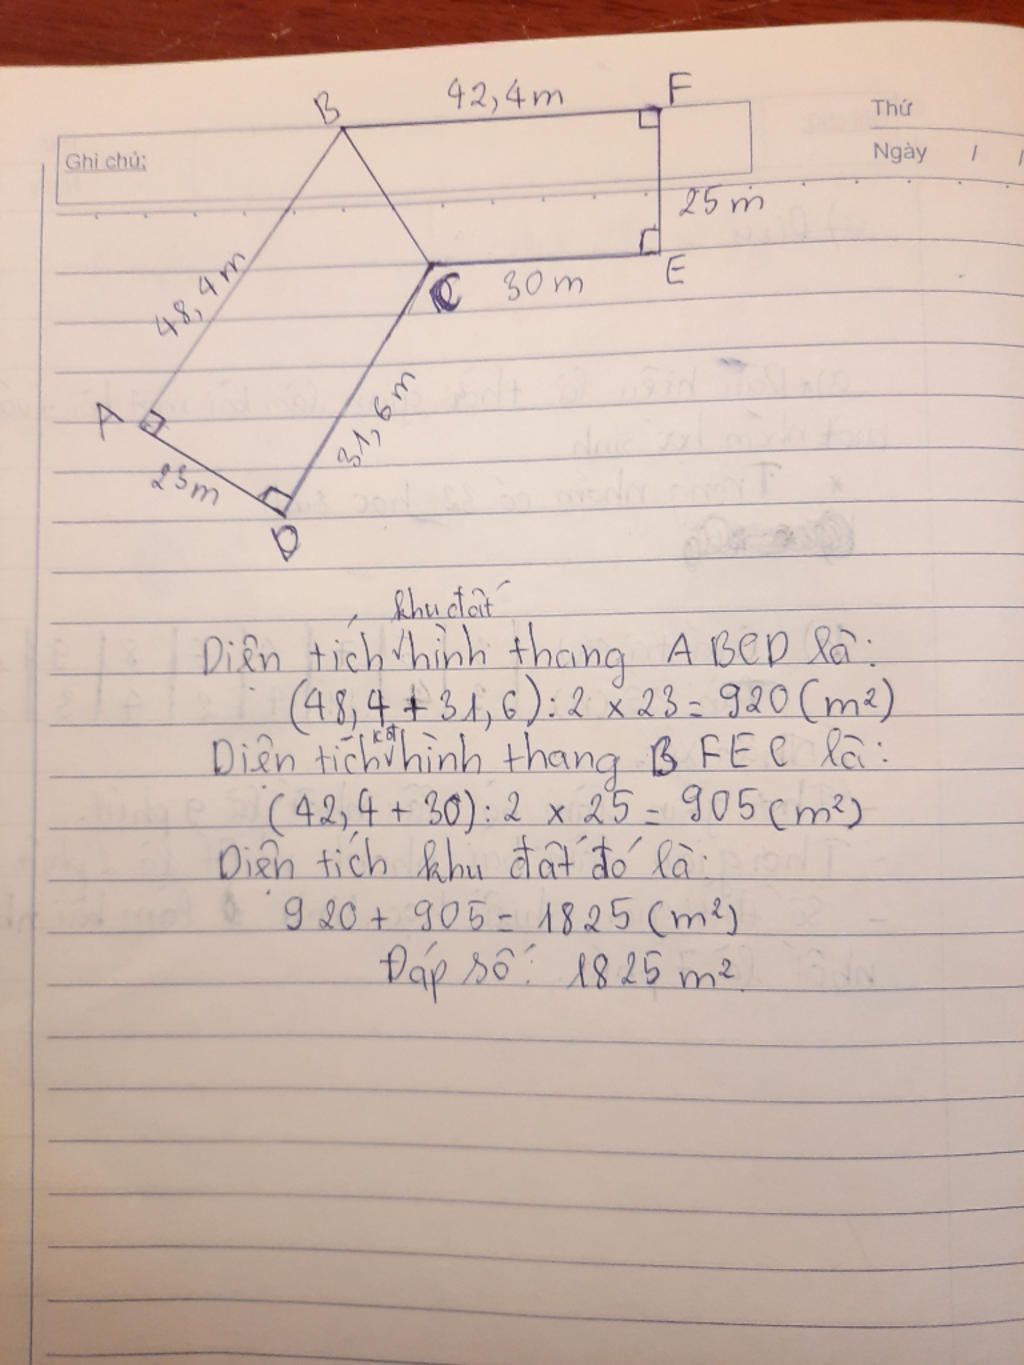 B
42,4m
F
Thứ
Ghi chú:
Ngày / /
25m
48,4m
C
30m
E
A
31,6m
23m
D
khu đất
Diện tích hình thang ABCD là:
(48,4+31,6):2 x 23 = 920 (m²)
Diện tích hình thang BFEC là:
(42,4+30):2 x 25 = 905 (m²)
Diện tích khu đất đó là:
920 + 905 = 1825 (m²)
Đáp số: 1825 m².